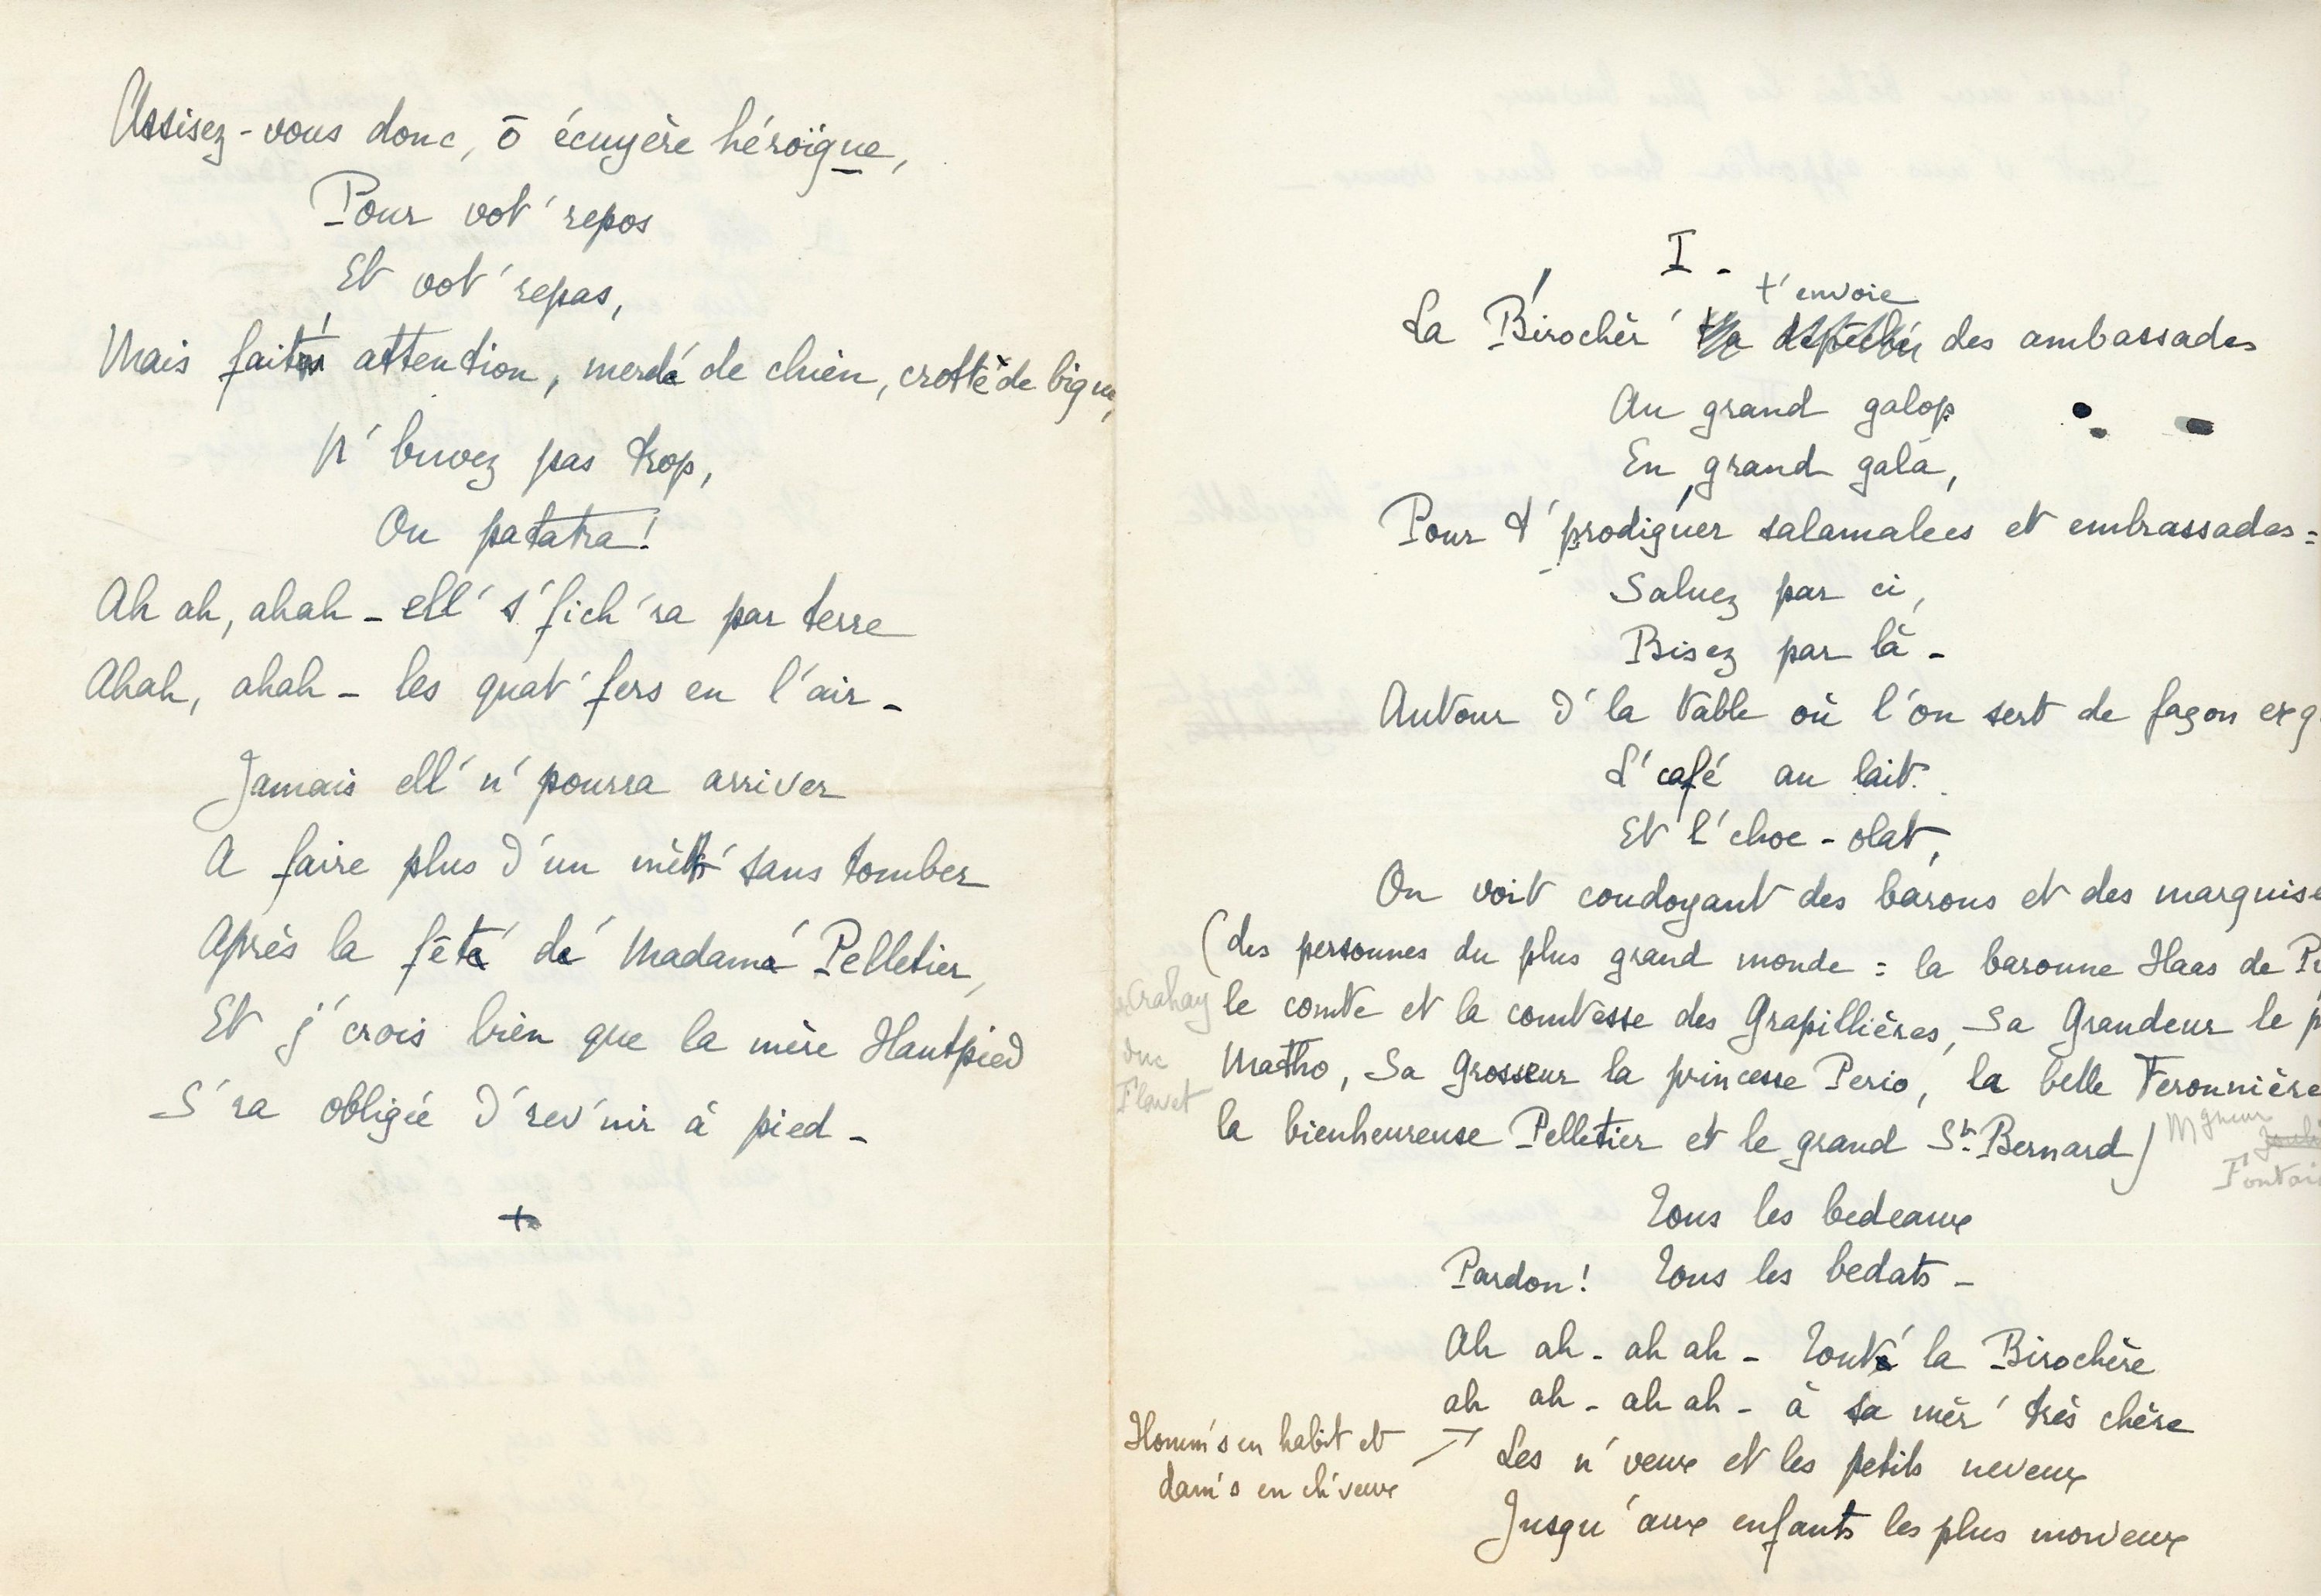 Assisez-vous donc, ō écuyère héroïque,
Pour vot' repos
Et vot' repas,
Mais fait's attention, merd' de chien, crott' de bique,
N' buvez pas trop,
Ou patatra!
Ah ah, ahah - ell' s' fich'ra par terre
Ahah, ahah - les quat' fers en l'air -
Jamais ell' n' pourra arriver
A faire plus d'un mètr' sans tomber
Après la fêt' de Madam' Pelletier,
Et j' crois bien que la mère Hautpied
S'ra obligée d'rev'nir à pied -
+
I -
t'envoie
La Birochèr' t'a des ambassades
Au grand galop
En grand gala,
Pour t' prodiguer salamalecs et embrassades =
Saluez par ci,
Bisez par là -
Autour d' la table où l'on sert de façon exq
L' café au lait
Et l' choc-olat,
On voit coudoyant des barons et des marquise
(des personnes du plus grand monde = la baronne Haas de
le comte et la comtesse des Grapillières, Sa Grandeur le p
Matho, Sa Grosseur la princesse Perio, la belle Feronnière
la bienheureuse Pelletier et le grand St. Bernard)
Crahay
duc
Flavet
Mgneur
Fontai
Tous les bedeaux
Pardon! Tous les bedats -
Ah ah - ah ah - Tout' la Birochère
ah ah - ah ah - à sa mèr' très chère
Homm's en habit et
dam's en ch'veux
Les n'veux et les petits neveux
Jusqu'aux enfants les plus morveux